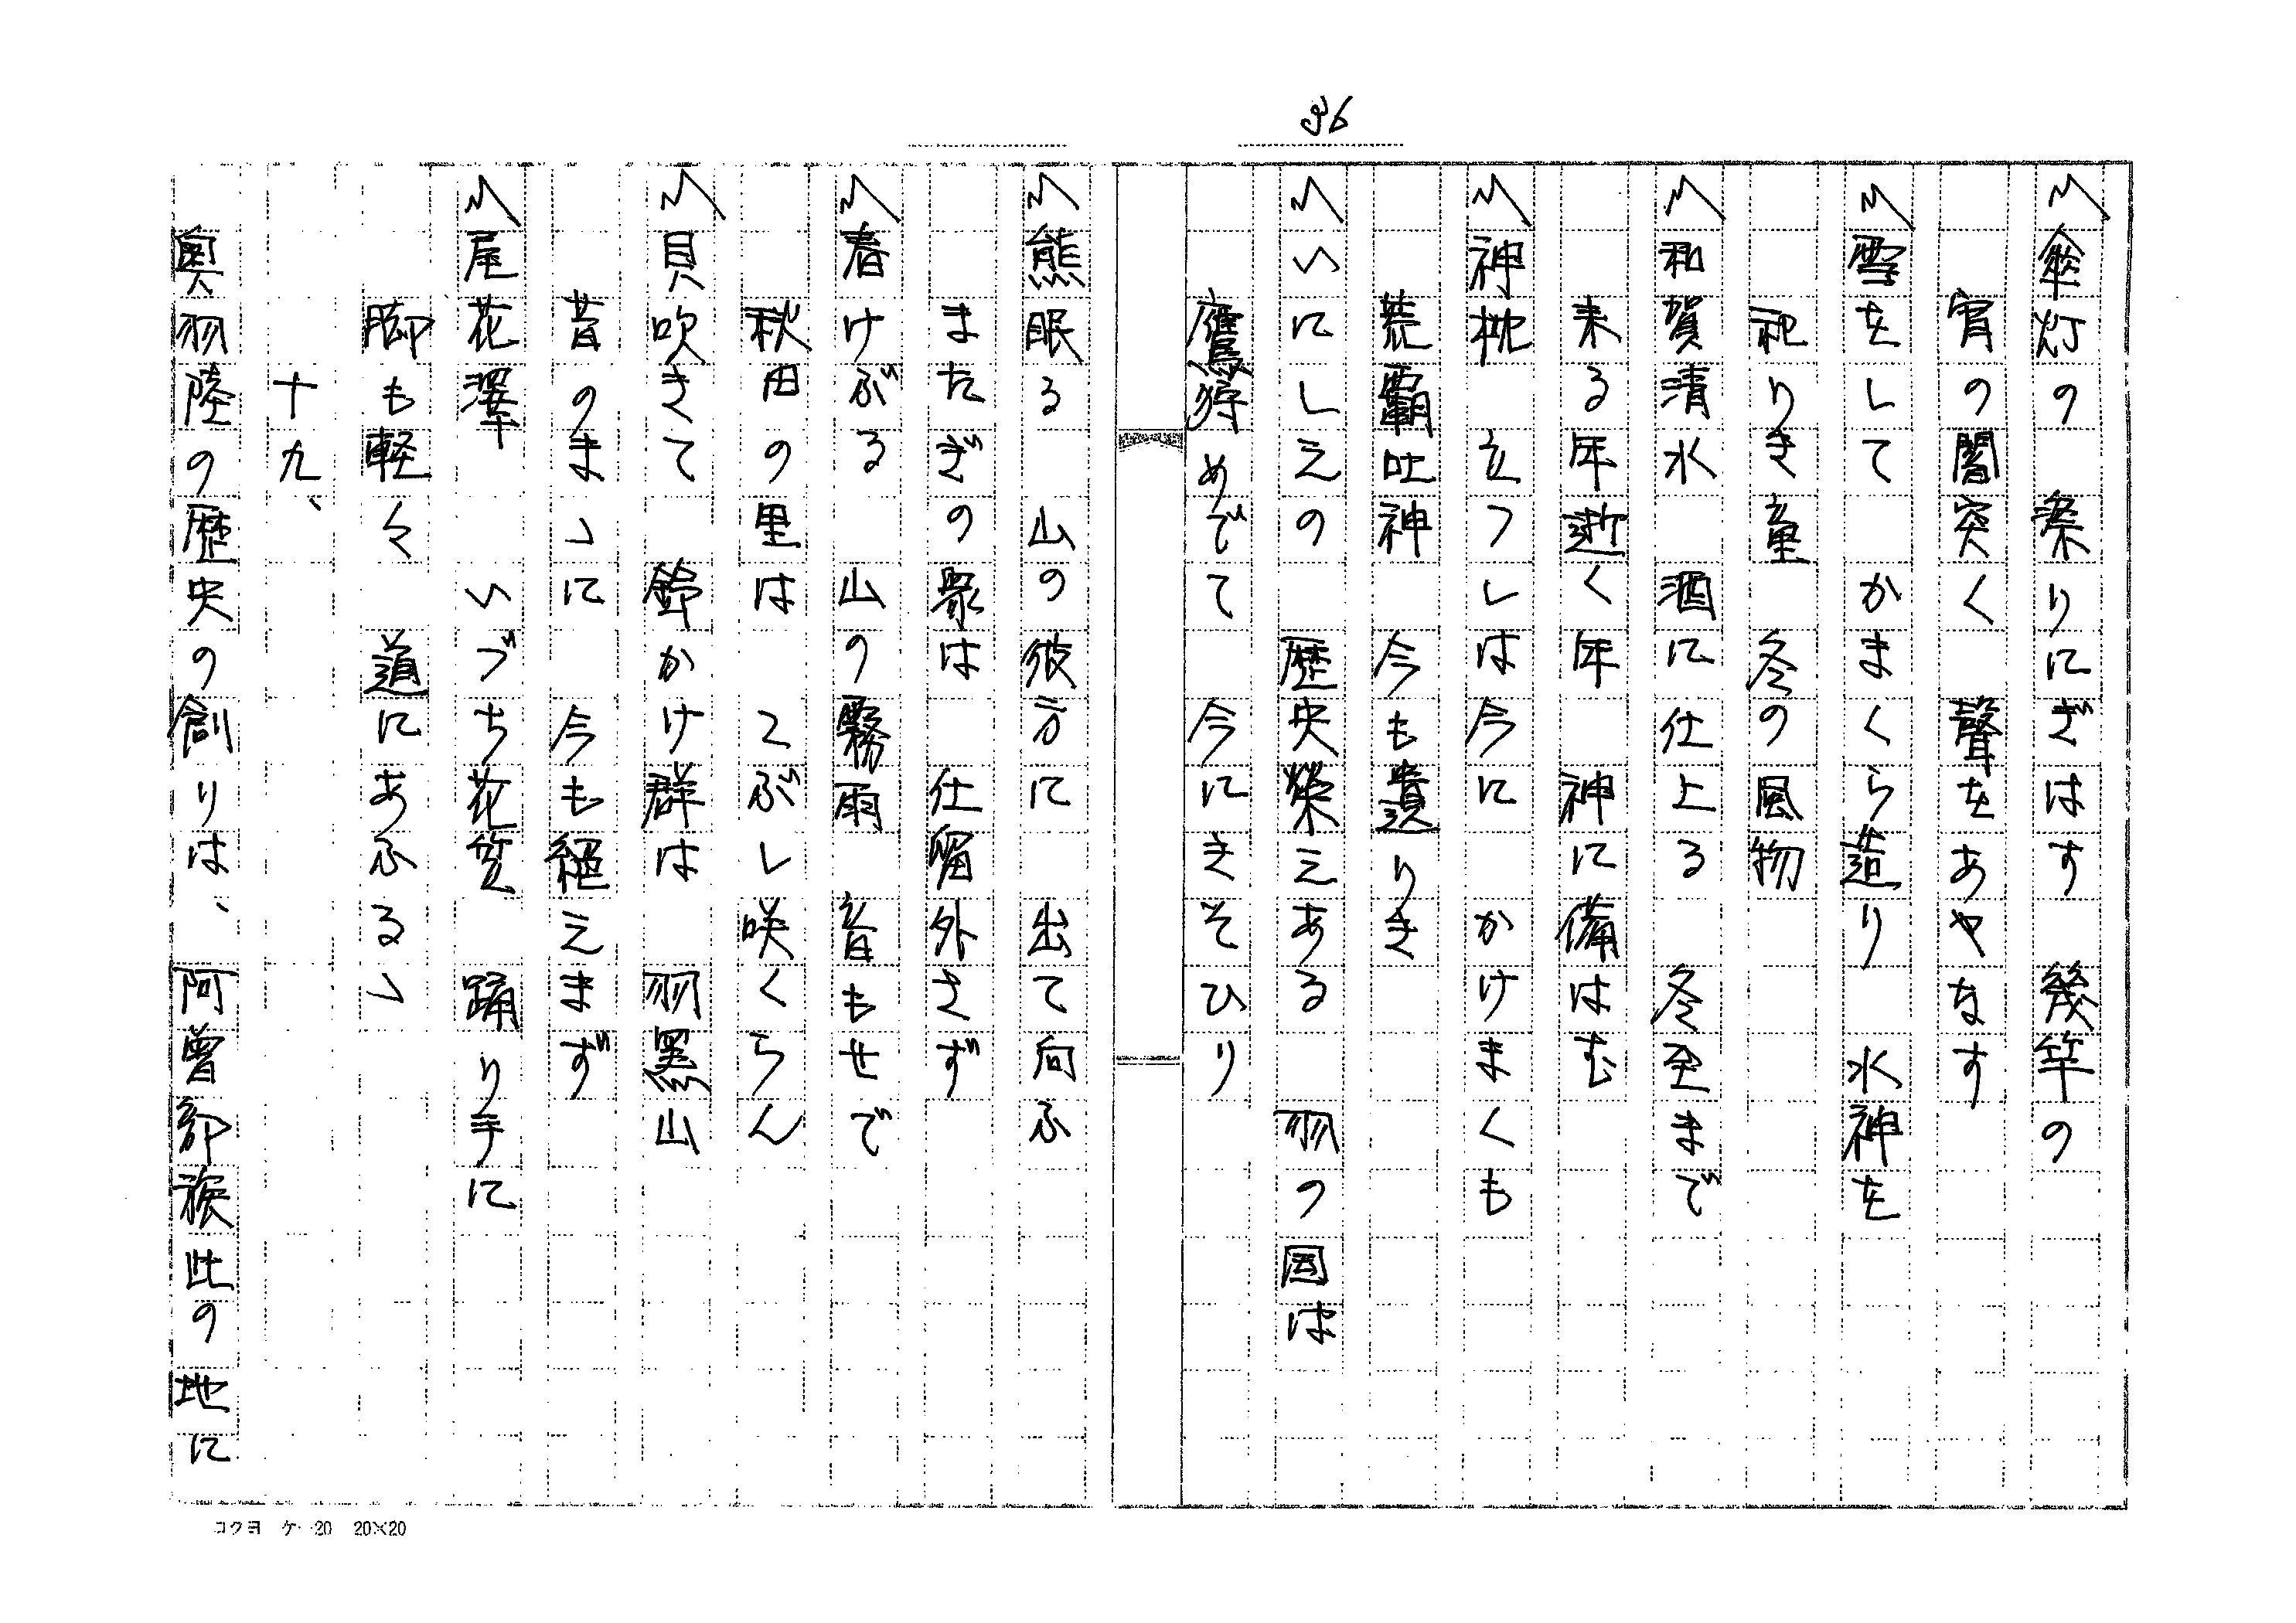 36
〽傘灯の　祭りにぎはす　幾竿の
宵の闇突く　聲をあやなす
〽雪をして　かまくら造り　水神を
祀りき童　冬の風物
〽和賀清水　酒に仕上る　冬至まで
来る年逝く年　神に備はむ
〽神枕　立つしは今に　かけまくも
荒覇吐神　今も遺りき
〽いにしえの　歴史榮えある　羽の国は
鷹狩めでて　今にきそひり
〽熊眠る　山の彼方に　出て向ふ
またぎの衆は　仕留外さず
〽春けぶる　山の霧雨　音もせで
秋田の里は　こぶし咲くらん
〽貝吹きて　鈴かけ群は　羽黒山
昔のまゝに　今も絕えまず
〽尾花澤　いづち花笠　踊り手に
脚も軽く　道にあふるゝ
十九、
奥羽陸の歴史の創りは、阿曽部族此の地に
コクヨ　ケ-20　20×20